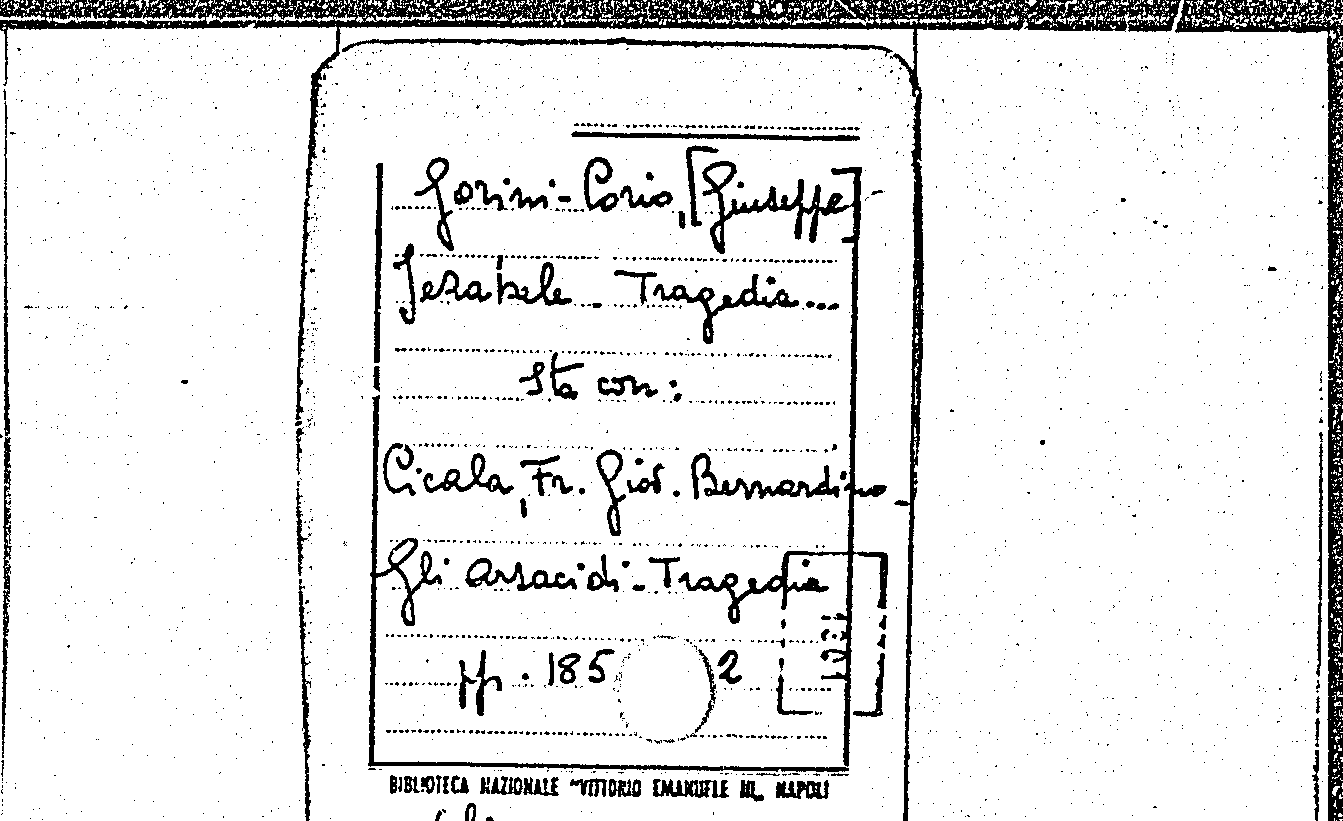 Gorini-Corio, [Giuseppe]
Jezabele - Tragedia...
Sta con:
Cicala, Fr. Giov. Bernardino -
Gli Arsacidi - Tragedia
pp. 185 2
BIBLIOTECA NAZIONALE "VITTORIO EMANUELE III„ NAPOLI